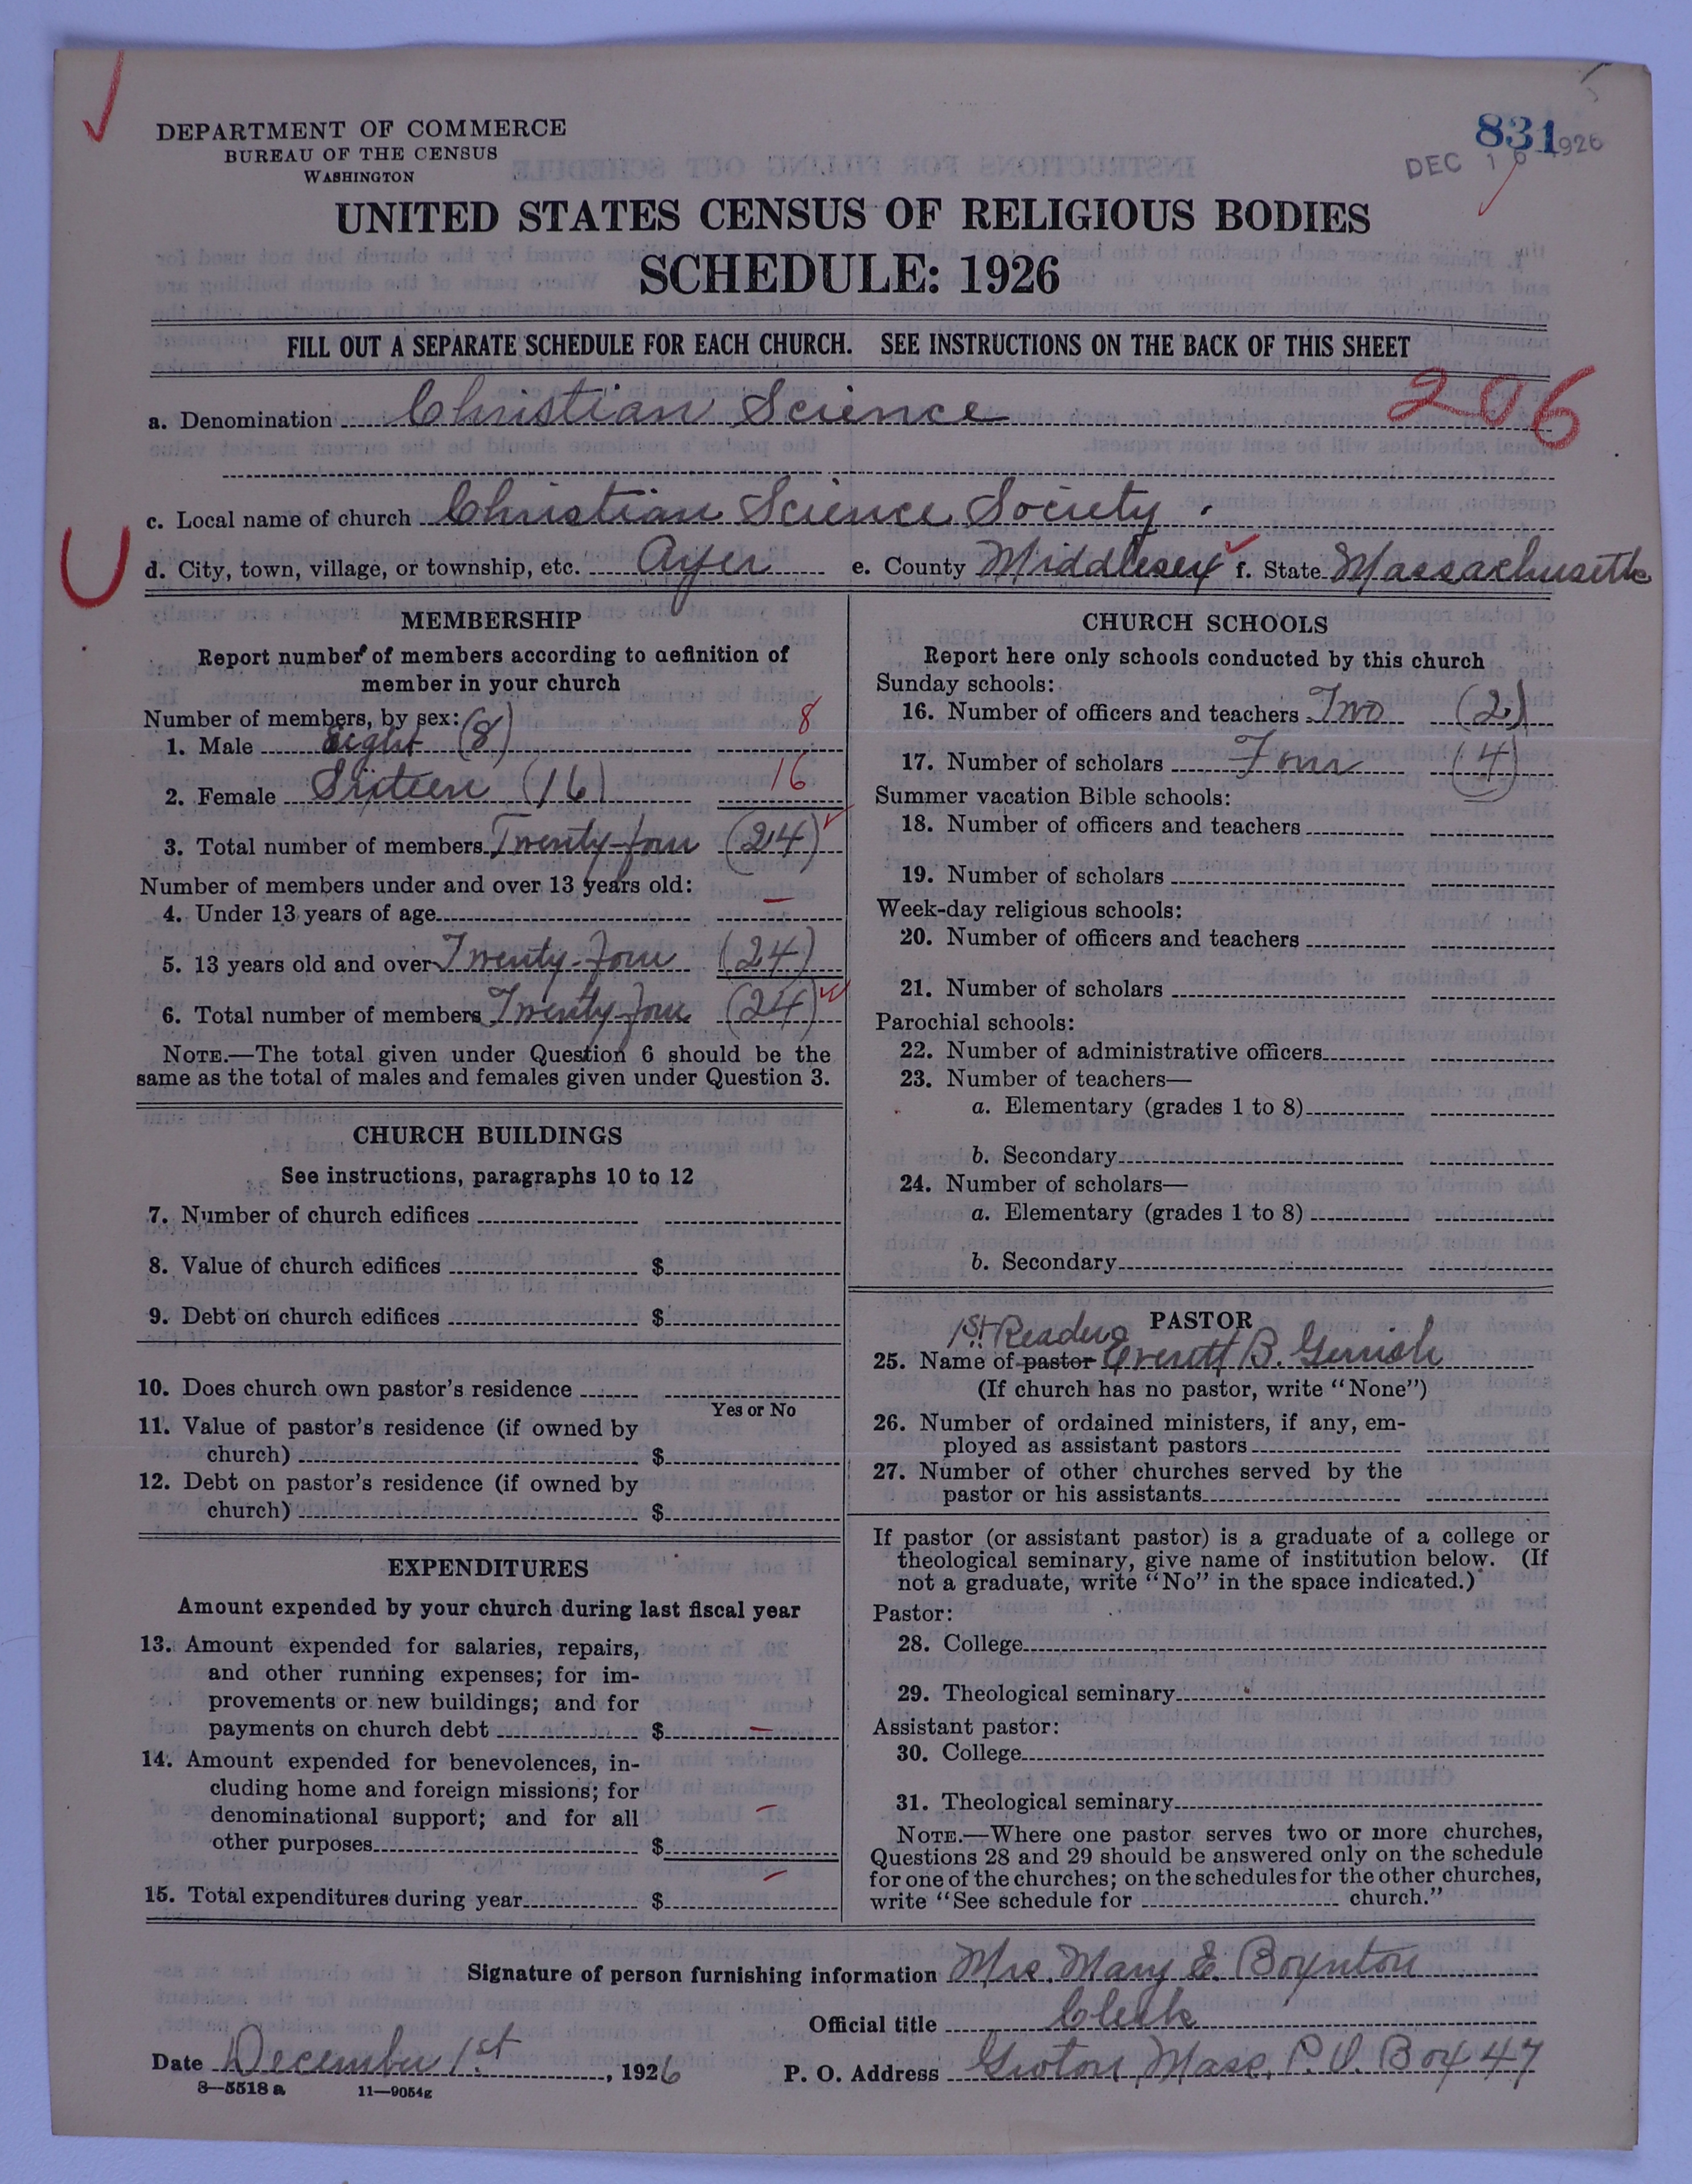 DEPARTMENT OF COMMERCE
BUREAU OF THE CENSUS
WASHINGTON
831
DEC 16 1926
UNITED STATES CENSUS OF RELIGIOUS BODIES
SCHEDULE: 1926
FILL OUT A SEPARATE SCHEDULE FOR EACH CHURCH. SEE INSTRUCTIONS ON THE BACK OF THIS SHEET
206
a. Denomination Christian Science
c. Local name of church Christian Science Society.
d. City, town, village, or township, etc. Ayer e. County Middlesex f. State Massachusetts
MEMBERSHIP
Report number of members according to definition of
member in your church
Number of members, by sex:
1. Male Eight (8) 8
2. Female Sixteen (16) 16
3. Total number of members Twenty-four (24)
Number of members under and over 13 years old:
4. Under 13 years of age –
5. 13 years old and over Twenty-four (24)
6. Total number of members Twenty-four (24)
NOTE.—The total given under Question 6 should be the
same as the total of males and females given under Question 3.
CHURCH BUILDINGS
See instructions, paragraphs 10 to 12
7. Number of church edifices
8. Value of church edifices $
9. Debt on church edifices $
10. Does church own pastor's residence
Yes or No
11. Value of pastor's residence (if owned by
church) $
12. Debt on pastor's residence (if owned by
church) $
EXPENDITURES
Amount expended by your church during last fiscal year
13. Amount expended for salaries, repairs,
and other running expenses; for im-
provements or new buildings; and for
payments on church debt $ –
14. Amount expended for benevolences, in-
cluding home and foreign missions; for
denominational support; and for all
other purposes $ –
15. Total expenditures during year $ –
CHURCH SCHOOLS
Report here only schools conducted by this church
Sunday schools:
16. Number of officers and teachers Two (2)
17. Number of scholars Four (4)
Summer vacation Bible schools:
18. Number of officers and teachers
19. Number of scholars
Week-day religious schools:
20. Number of officers and teachers
21. Number of scholars
Parochial schools:
22. Number of administrative officers
23. Number of teachers—
a. Elementary (grades 1 to 8)
b. Secondary
24. Number of scholars—
a. Elementary (grades 1 to 8)
b. Secondary
PASTOR
1st Reader
25. Name of pastor Everett B. Gerrish
(If church has no pastor, write "None")
26. Number of ordained ministers, if any, em-
ployed as assistant pastors
27. Number of other churches served by the
pastor or his assistants
If pastor (or assistant pastor) is a graduate of a college or
theological seminary, give name of institution below. (If
not a graduate, write "No" in the space indicated.)
Pastor:
28. College
29. Theological seminary
Assistant pastor:
30. College
31. Theological seminary
NOTE.—Where one pastor serves two or more churches,
Questions 28 and 29 should be answered only on the schedule
for one of the churches; on the schedules for the other churches,
write "See schedule for church."
Signature of person furnishing information Mrs. Mary E. Boynton
Official title Clerk
Date December 1st, 1926 P. O. Address Groton, Mass, P.O. Box 47
8—5518 a 11—9054g